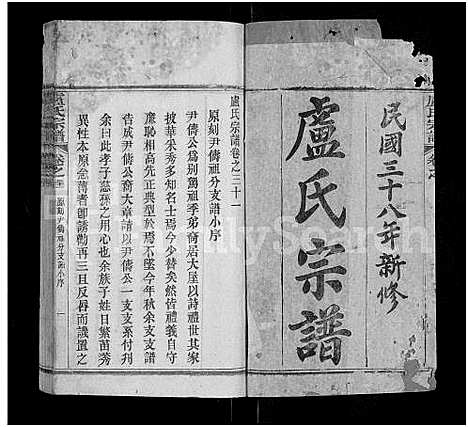 民國三十八年新修
盧氏宗譜
盧氏宗譜卷之三十一
原刻尹儔祖分支譜小序
尹儔公爲別駕祖季弟裔居大屋以詩禮世其家
披華采秀多知名士焉今少替矣然皆禮義自守
廉恥相高先正典型於焉不墜今年秋余支支譜
告成尹儔公裔大章請以尹儔公一支支系付刋
余曰此孝子慈孫之用心也余族子姓日繁苗莠
異性本原念薄者卽誘勸再三且反脣而譏置之
盧氏宗譜
卷之
原刻尹儔祖分支譜小序
一